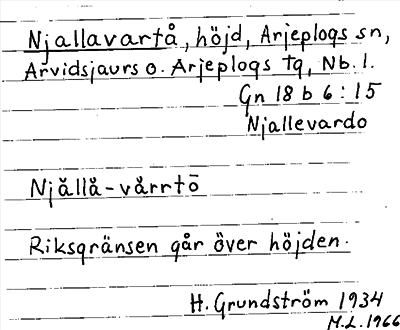 Njallavartå, höjd, Arjeplogs sn,
Arvidsjaurs o. Arjeplogs tg, Nb. l.
Gn 18 b 6:15
Njallevardo
Njǎllå-vårrtō
Riksgränsen går över höjden.
H. Grundström 1934
M.L. 1966